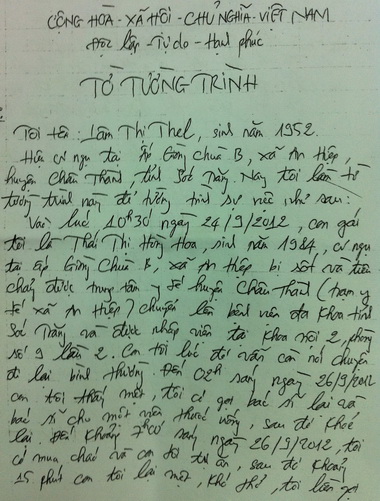 CỘNG HÒA - XÃ HỘI - CHỦ NGHĨA - VIỆT NAM
Độc lập - Tự do - Hạnh phúc
TỜ TƯỜNG TRÌNH
Tôi tên: Lâm Thị Thel, sinh năm 1952.
Hiện cư ngụ tại ấp Giồng Chùa B, xã An Hiệp,
huyện Châu Thành, tỉnh Sóc Trăng. Nay tôi làm tờ
tường trình này để tường trình sự việc như sau:
Vào lúc 10h30 ngày 24/9/2012, con gái
tôi là Thái Thị Hồng Hoa, sinh năm 1984, cư ngụ
tại ấp Giồng Chùa B, xã An Hiệp bị sốt và tiêu
chảy được trung tâm y tế huyện Châu Thành (trạm y
tế xã An Hiệp) chuyển lên bệnh viện đa khoa tỉnh
Sóc Trăng và được nhập viện tại khoa nội 2, phòng
số 9 lần 2. Con tôi lúc đó vẫn còn nói chuyện
đi lại bình thường. Đến 02h sáng ngày 26/9/2012
con tôi thấy mệt, tôi có gọi bác sĩ lại và
bác sĩ cho một viên thuốc uống, sau đó khoẻ
lại. Đến khoảng 7h00 sáng ngày 26/9/2012, tôi
có mua cháo và con tôi tự ăn, sau đó khoảng
15 phút con tôi lại mệt, khó thở, tôi liền gọi